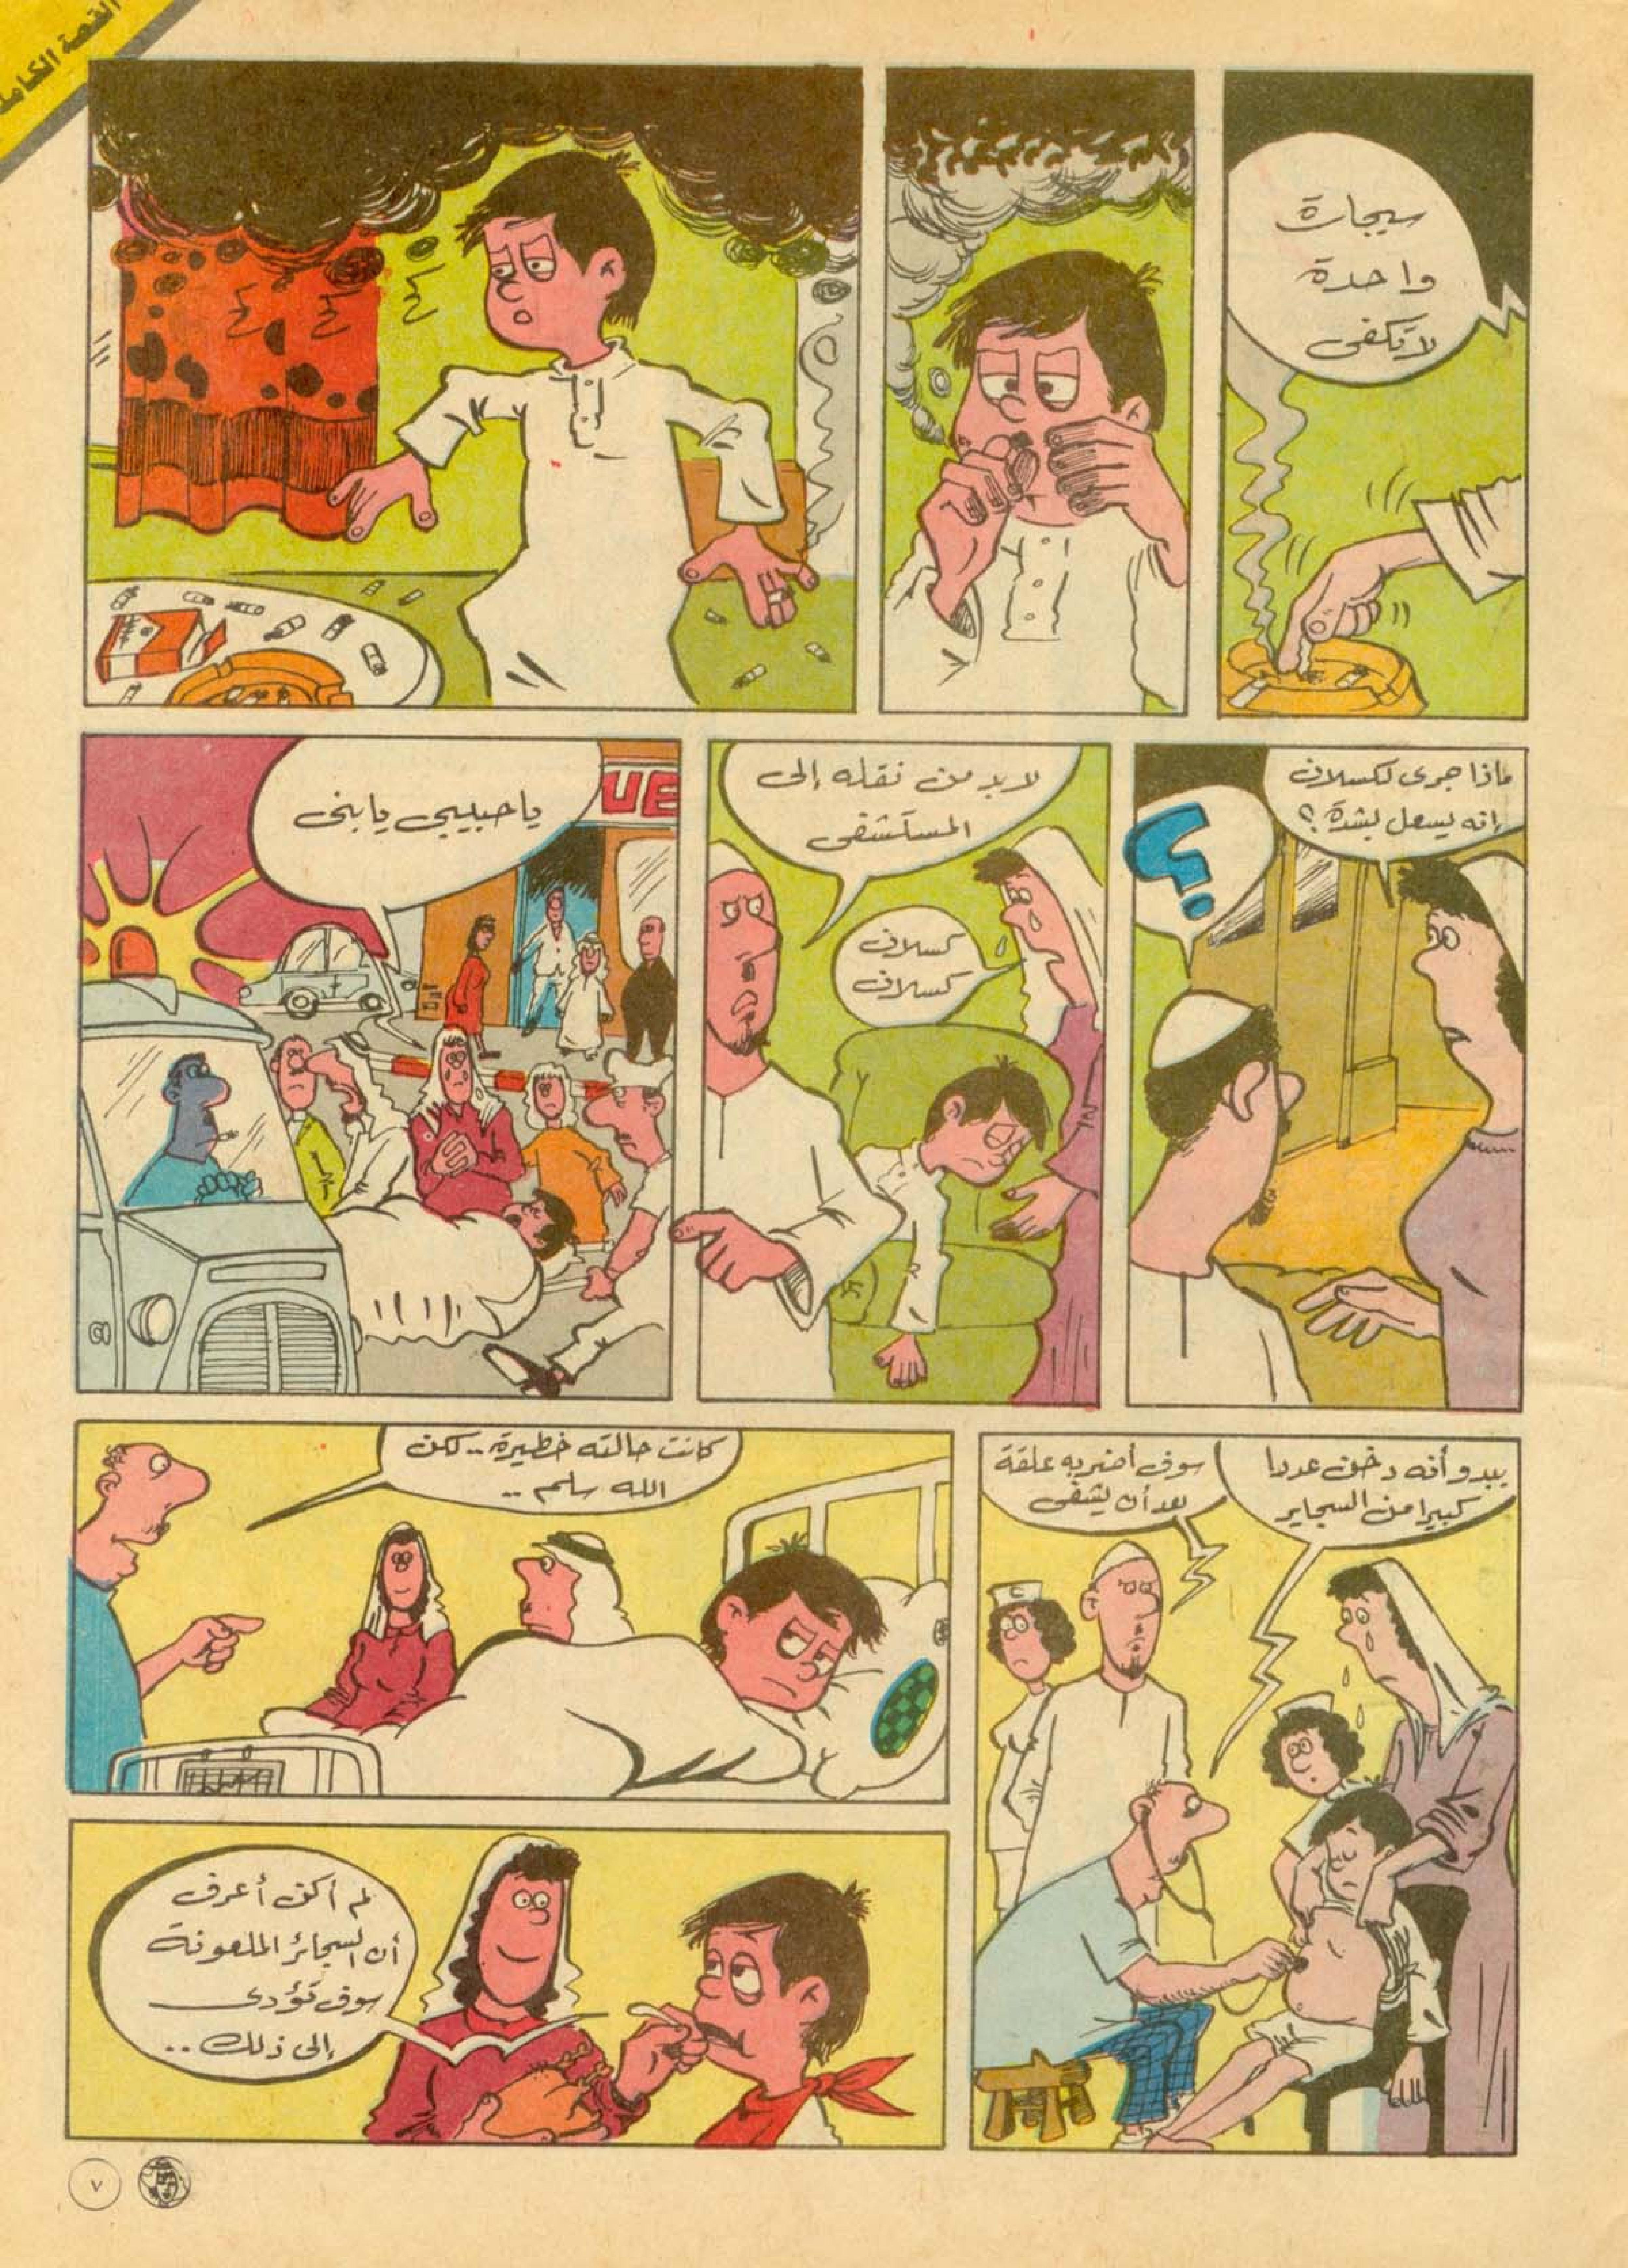 القصة الكاملة
سيجارة
واحدة
لا تكفى
ماذا جرى لكسلان
إنه يسعل بشدة ؟
؟
لابد من نقله إلى
المستشفى
كسلان
كسلان
يا حبيبي يا بنى
UE
يبدو أنه دخن عددا
كبيرا من السجاير
سوف أضربه علقة
بعد أن يشفى
كانت حالته خطيرة .. لكن
الله سلم ..
لم أكن أعرف
أن السجائر الملعونة
سوف تؤدى
إلى ذلك ..
٧